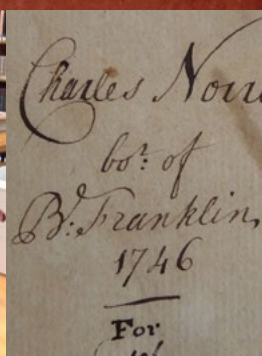 Charles
bot. of
Bd. Franklin,
1746
For